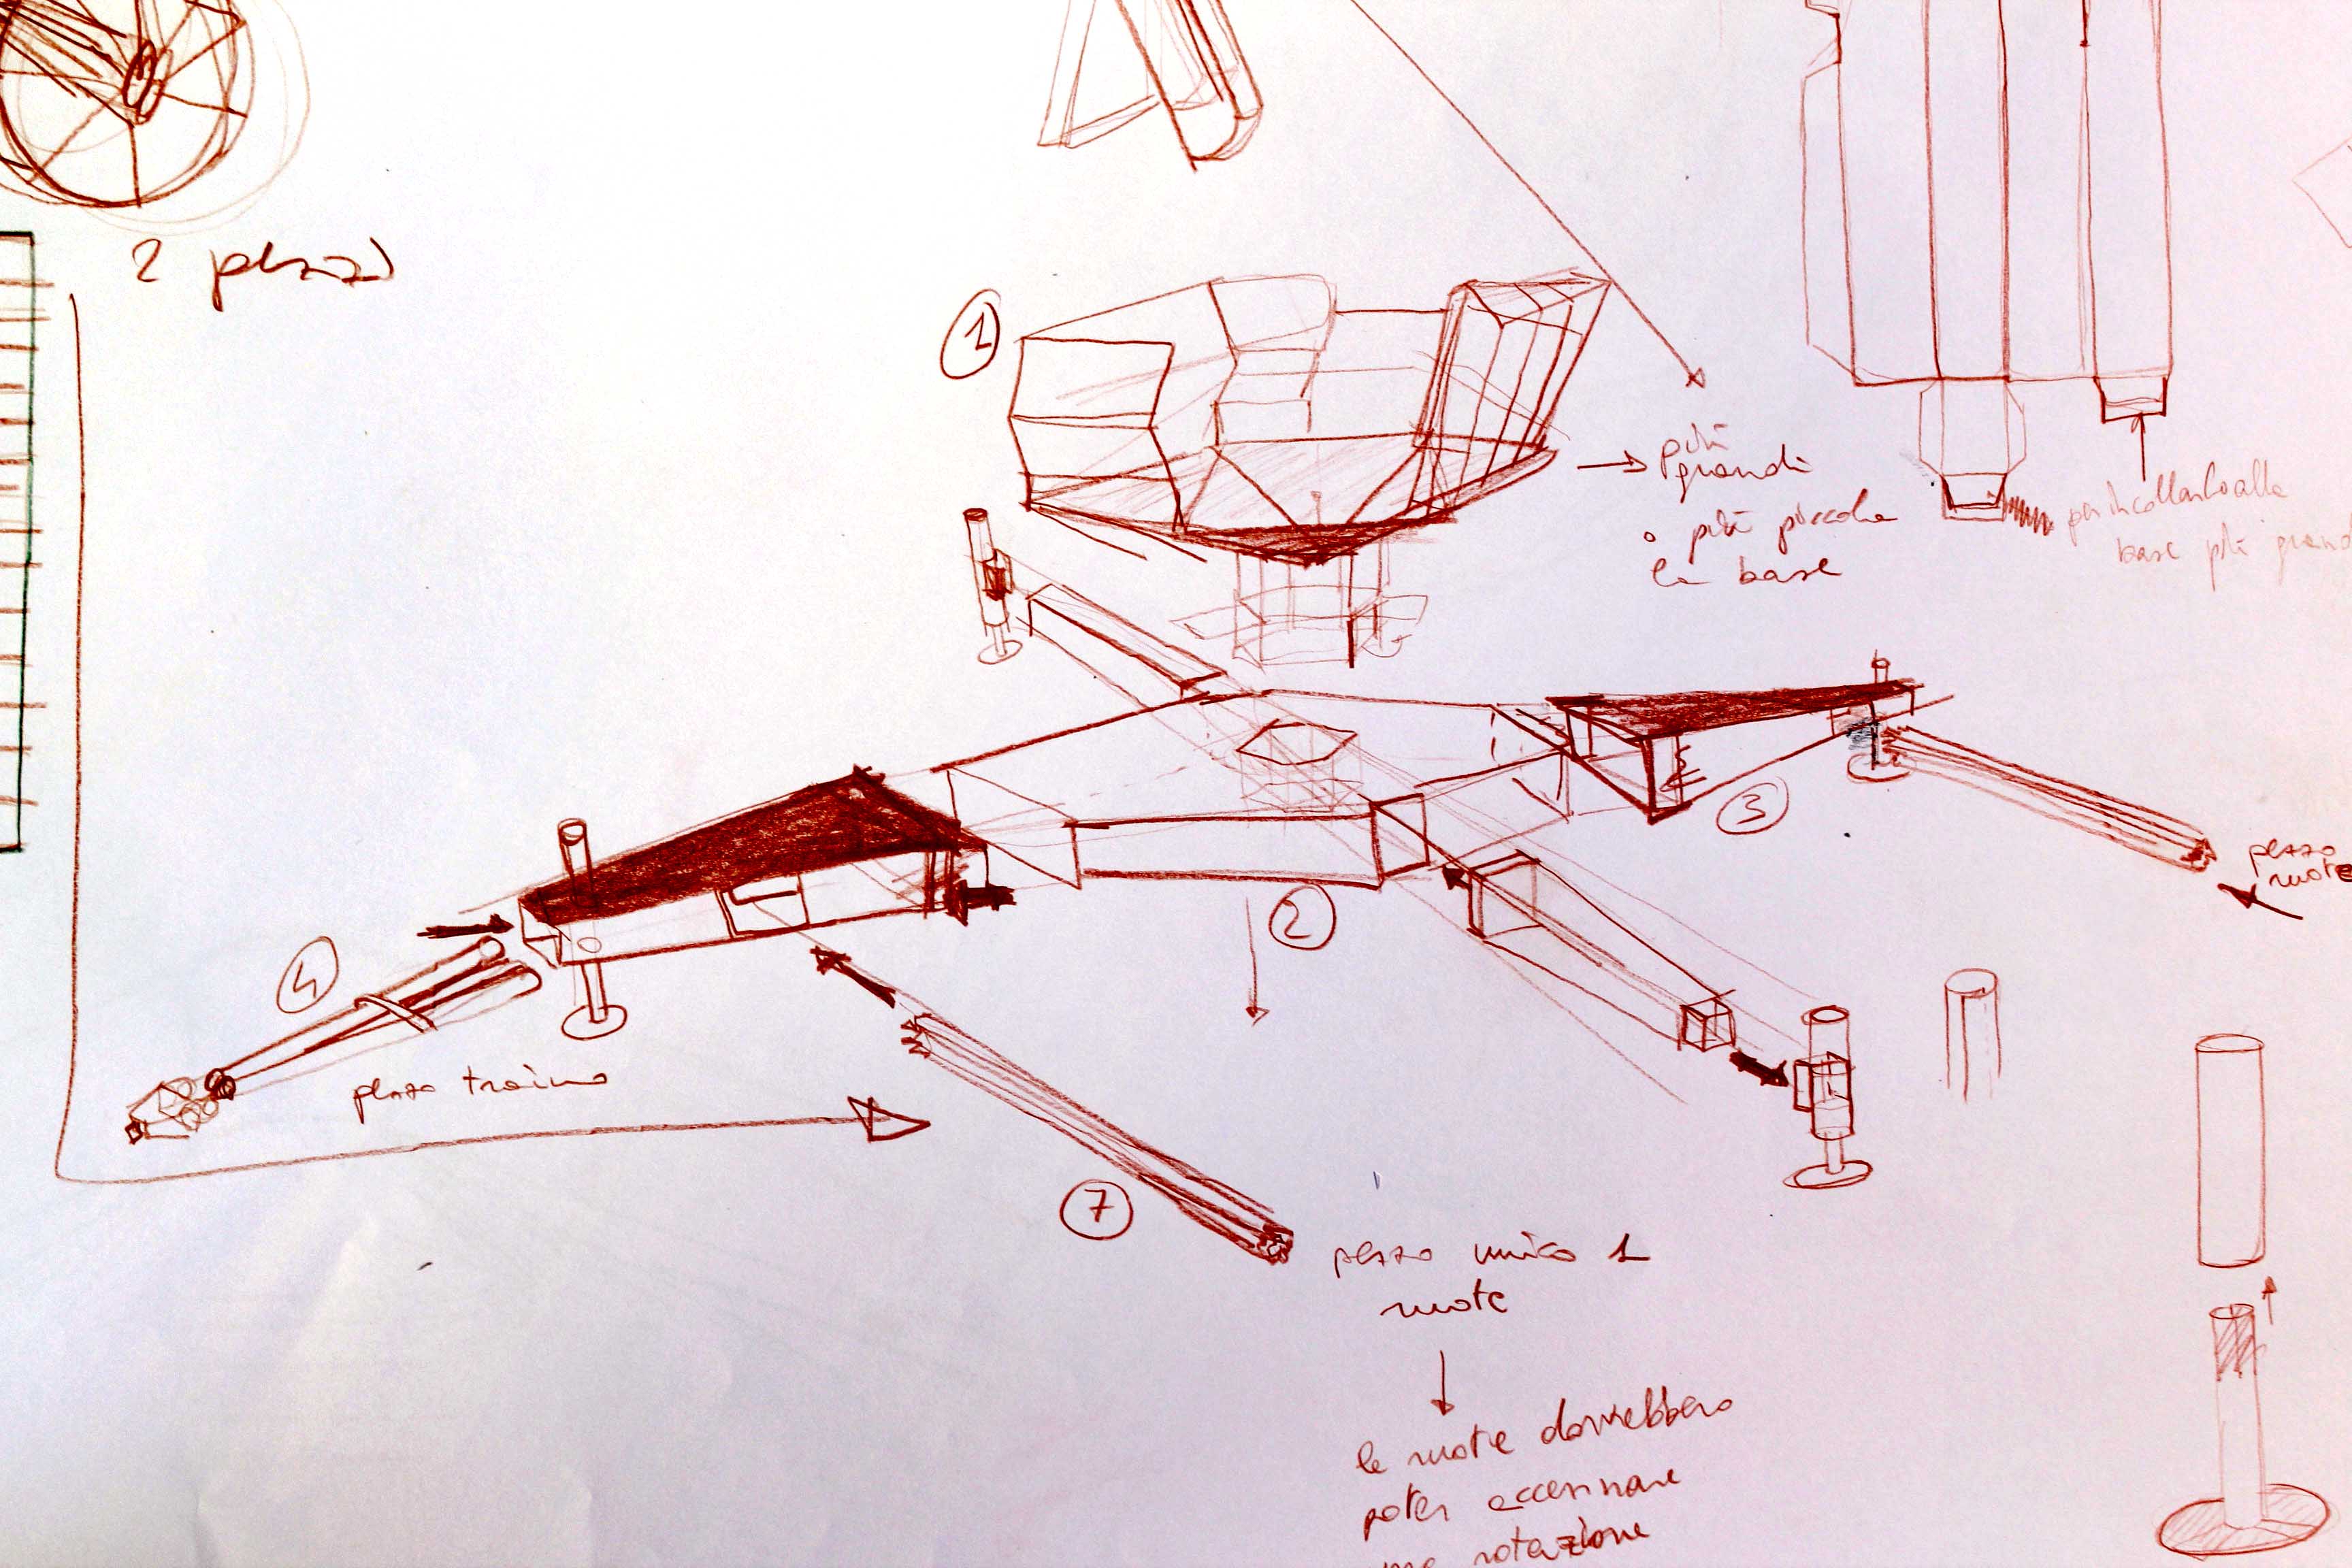 2 pezzi
1
più
grandi
o più piccola
la base
per incollarlo alle
base più
3
pezzo
ruote
2
4
pezzo traino
7
pezzo unico 1
ruote
le ruote dovrebbero
poter accennare
una rotazione